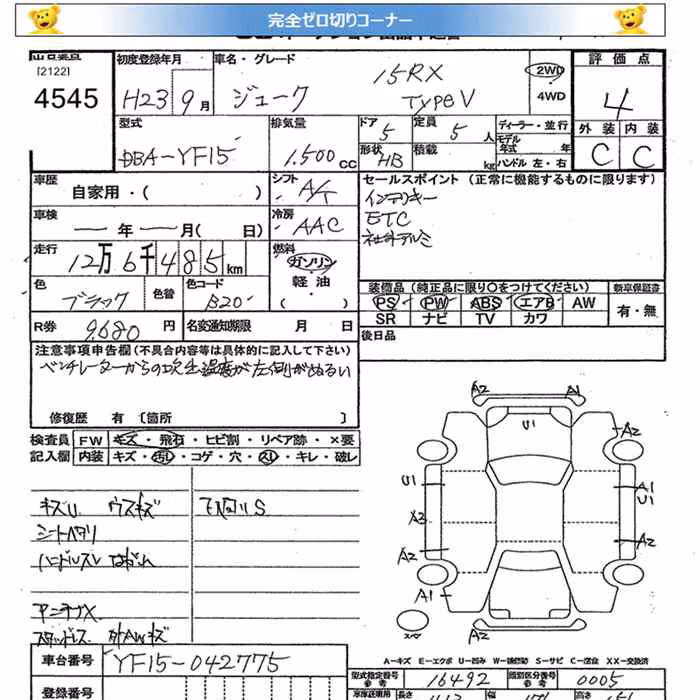 完全ゼロ切りコーナー
[2122]
4545
初度登録年月
H23 9月
車名・グレード
ジューク
15RX
TypeV
2WD
4WD
評価点
4
外装 内装
C C
型式
DBA-YF15
排気量
1.500cc
ドア 5
形状 HB
定員 5人
積載 kg
ディーラー・並行
モデル年式 年
ハンドル 左・右
車歴
自家用・( )
シフト
A/T
セールスポイント (正常に機能するものに限ります)
インテリキー
ETC
社外アルミ
車検
ー年ー月( 日)
冷房
AAC
走行
12万6千485km
燃料
ガソリン
軽油
( )
色
ブラック
色替
色コード
B20
装備品(純正品に限り○をつけてください)
PS PW ABS エアB AW
SR ナビ TV カワ
新車保証書
有・無
R券 9,680円
名変通知期限 月 日
後日品
注意事項申告欄(不具合内容等は具体的に記入して下さい)
ベンチレーターからの吹出温度が左側がぬるい
修復歴 有 〔箇所 〕
検査員記入欄
FW キズ・飛石・ヒビ割・リペア跡・×要
内装 キズ・汚れ・コゲ・穴・スレ・キレ・破レ
キズU ウスキズ
シートヘタリ
ハンドルスレ
アンテナX
スタッドレス 外AWキズ
A2 A1
U1
A2 A2
U1 A1
U1
A2 A2
A2
A1
A2
スペ
A=キズ E=エクボ U=凹み W=補修跡 S=サビ C=腐食 XX=交換済
車台番号
YF15-042775
型式指定番号 16492
類別区分番号 0005
登録番号
長さ